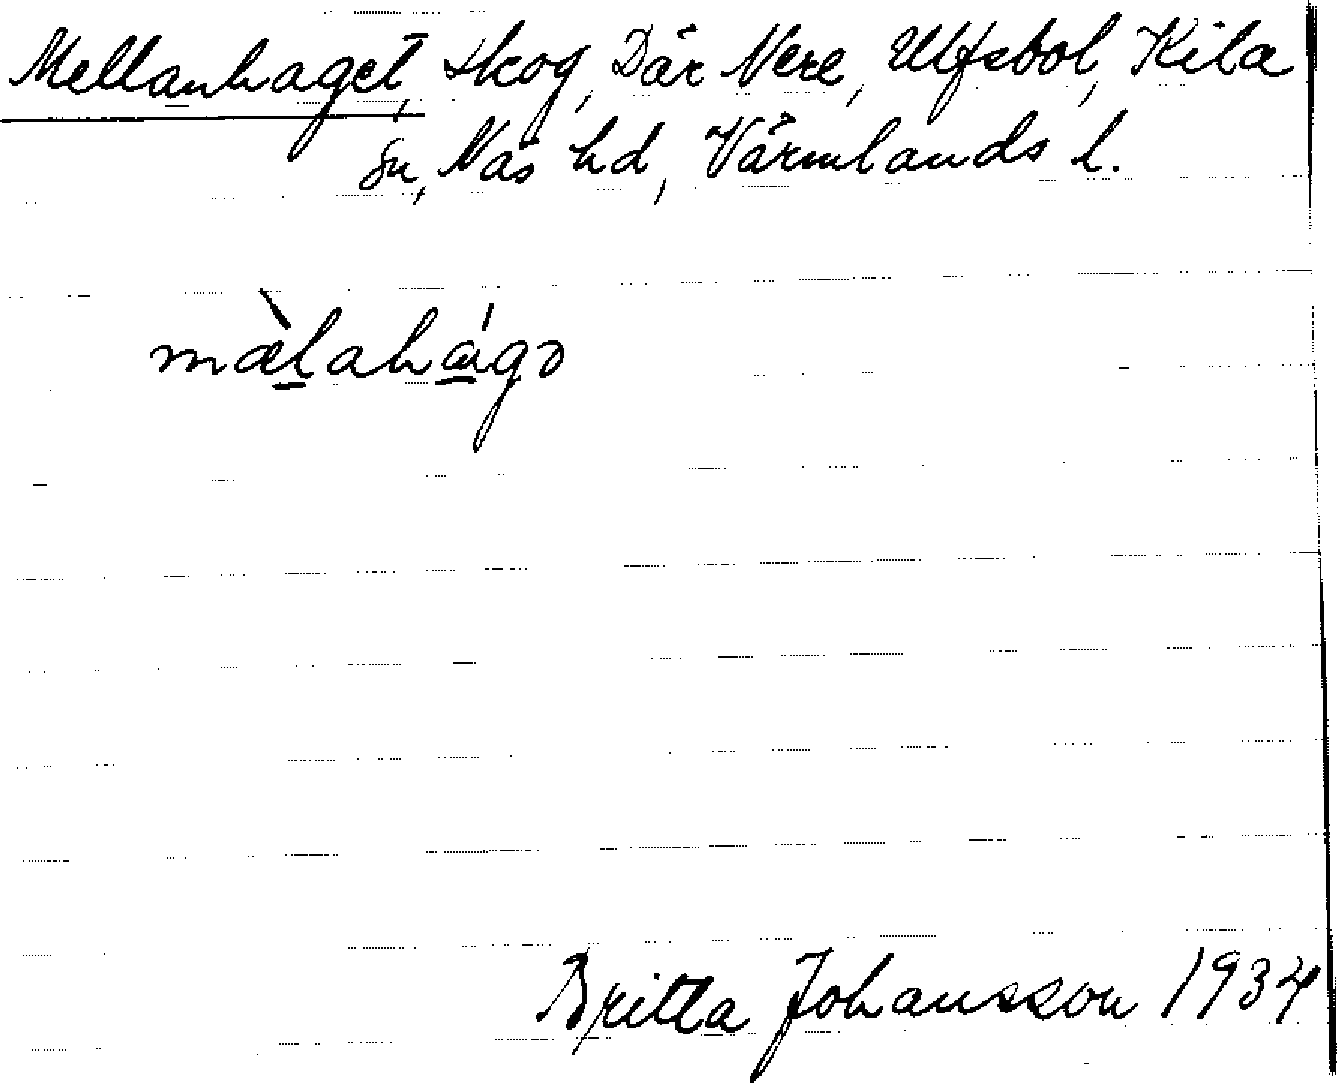 Mellanhaget, skog, Där Nere, Ulfsbol, Kila
sn, Näs hd, Värmlands l.
mæ̀lahágə
Britta Johansson 1934